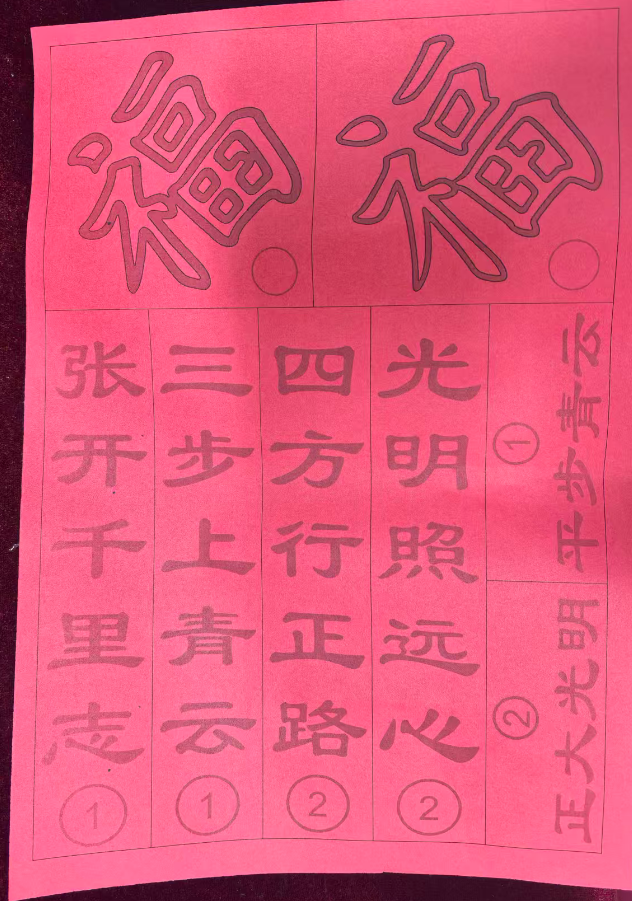 福
福
张开千里志
①
三步上青云
①
四方行正路
②
光明照远心
②
平步青云
①
正大光明
②